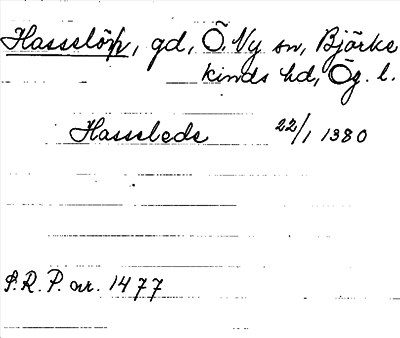 Hasslöp, gd, Ö. Ny sn, Björke
kinds hd, Ög. l.
Hassleda 22/1 1380
S.R.P. nr. 1477